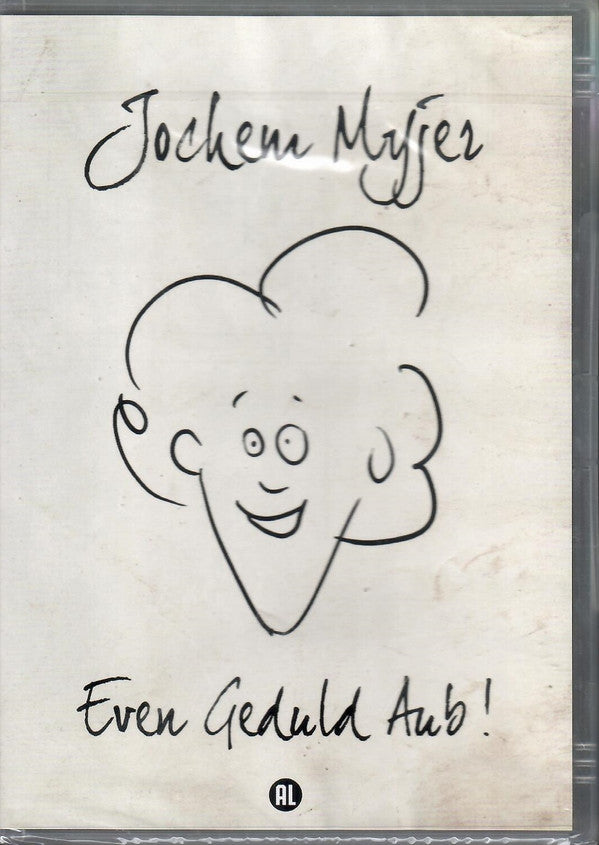 Jochem Myjer
Even Geduld Aub!
AL